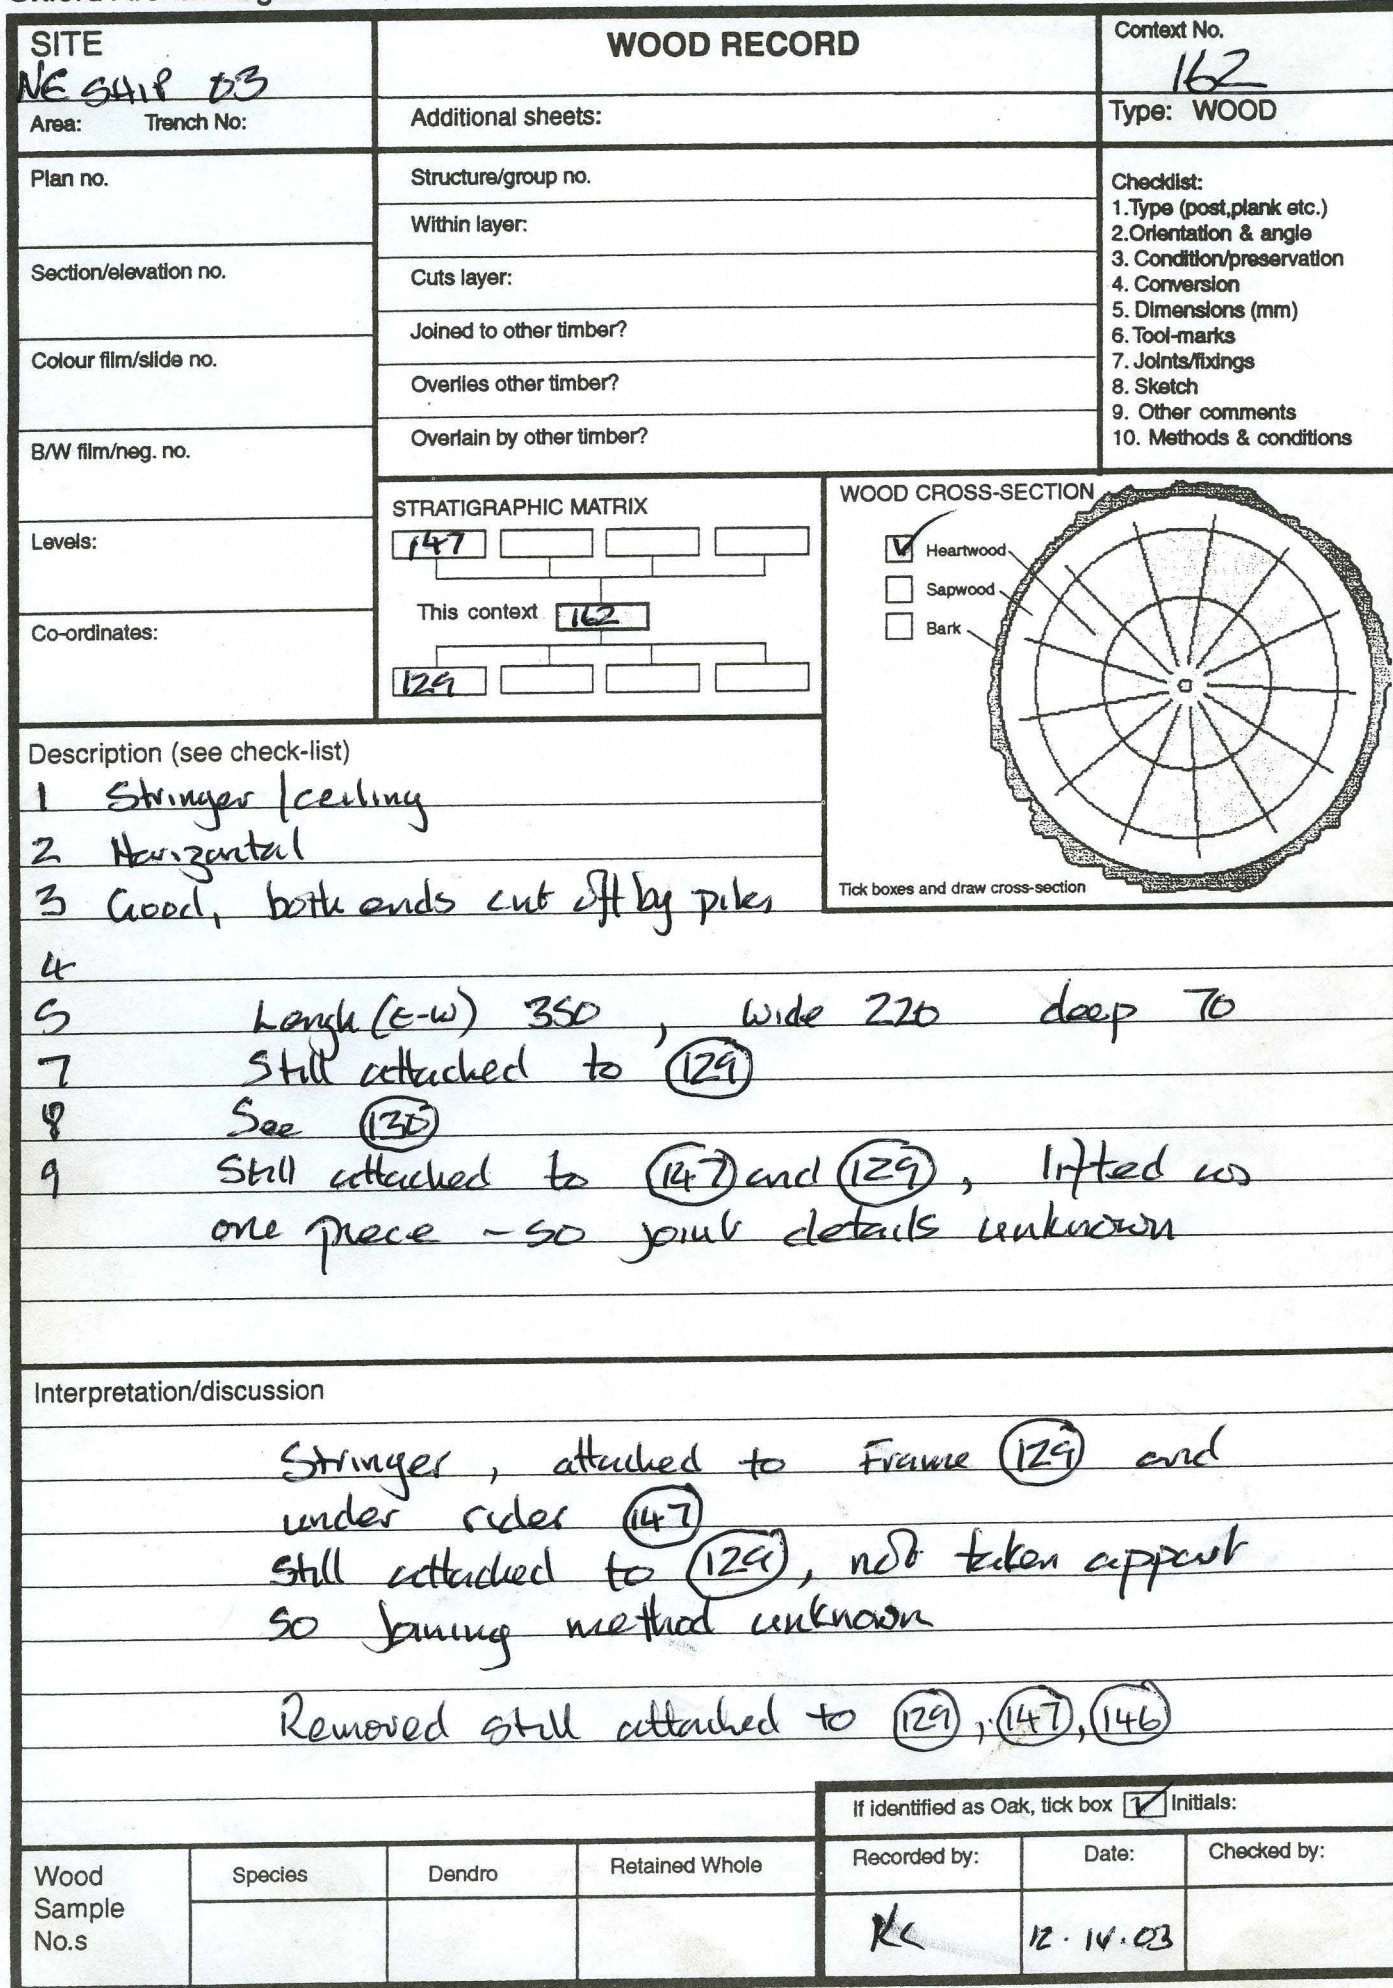 SITE
NE SHIP 03
Area: Trench No:
WOOD RECORD
Additional sheets:
Context No.
162
Type: WOOD
Plan no.
Section/elevation no.
Colour film/slide no.
B/W film/neg. no.
Levels:
Co-ordinates:
Structure/group no.
Within layer:
Cuts layer:
Joined to other timber?
Overlies other timber?
Overlain by other timber?
Checklist:
1.Type (post,plank etc.)
2.Orientation & angle
3. Condition/preservation
4. Conversion
5. Dimensions (mm)
6. Tool-marks
7. Joints/fixings
8. Sketch
9. Other comments
10. Methods & conditions
STRATIGRAPHIC MATRIX
147
This context 162
129
WOOD CROSS-SECTION
Heartwood
Sapwood
Bark
Tick boxes and draw cross-section
Description (see check-list)
1 Stringer / ceiling
2 Horizontal
3 Good, both ends cut off by piles
4
5 Length (E-W) 350, wide 220 deep 70
7 Still attached to 129
8 See 130
9 Still attached to 147 and 129, lifted as
one piece - so joint details unknown
Interpretation/discussion
Stringer, attached to Frame 129 and
under rider 147
Still attached to 129, not taken appart
so joining method unknown
Removed still attached to 129, 147, 146
If identified as Oak, tick box Initials:
Wood Sample No.s
Species
Dendro
Retained Whole
Recorded by:
Date:
Checked by:
12.IV.03